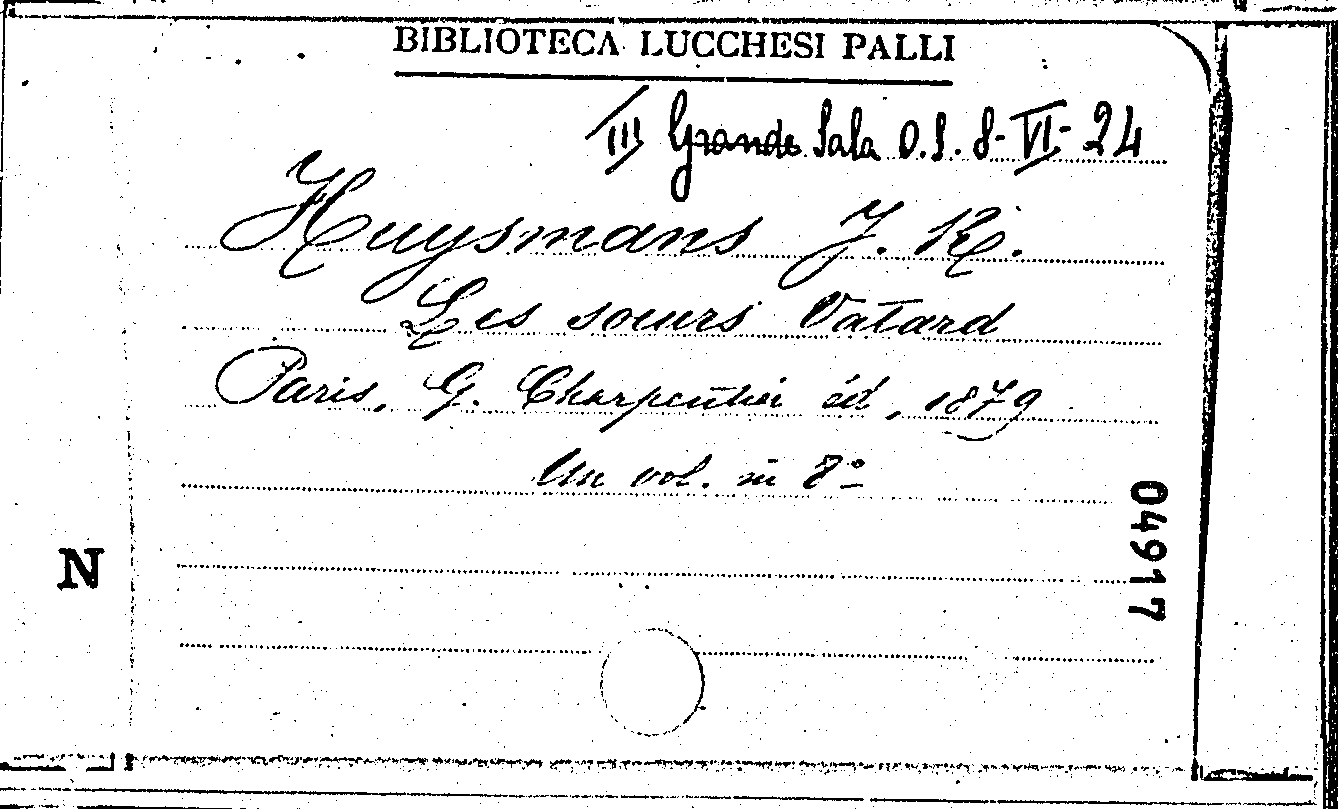 BIBLIOTECA LUCCHESI PALLI
III Grande Sala O.S. 8-VI-24
Huysmans J. K.
Les soeurs Vatard
Paris, G. Charpentier éd, 1879
Un vol. in 8°
N
04917